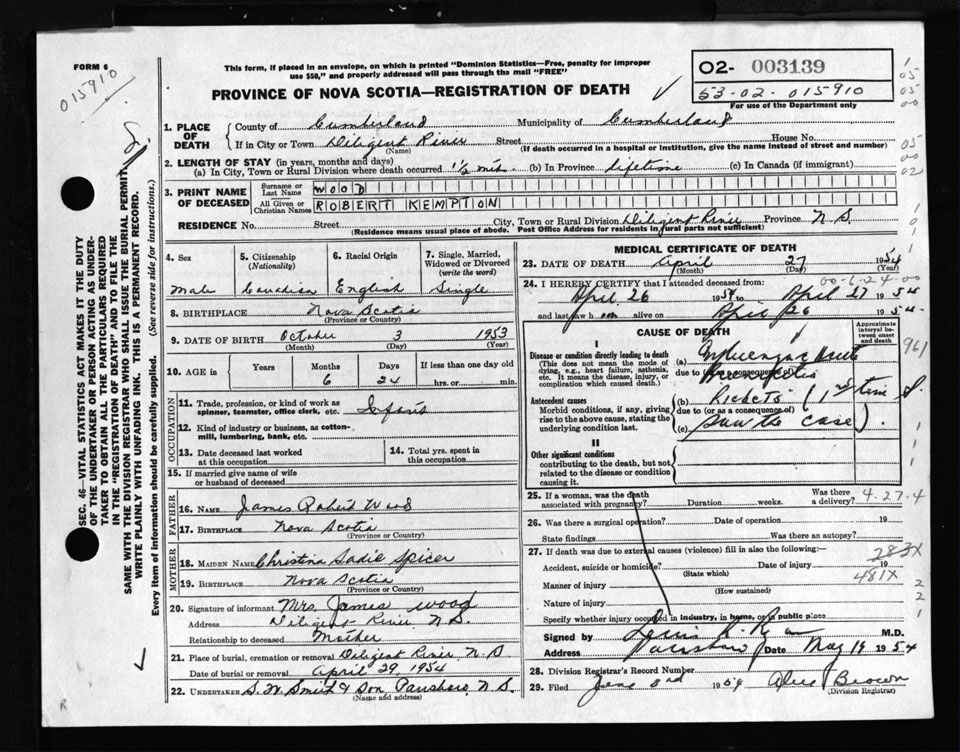 FORM 6
015910
This form, if placed in an envelope, on which is printed "Dominion Statistics—Free, penalty for improper
use $50," and properly addressed will pass through the mail "FREE"
02- 003139
53-02-015910
For use of the Department only
PROVINCE OF NOVA SCOTIA—REGISTRATION OF DEATH
1. PLACE OF DEATH
County of Cumberland Municipality of Cumberland
If in City or Town Diligent River Street House No.
(Name) (If death occurred in a hospital or institution, give the name instead of street and number)
2. LENGTH OF STAY (in years, months and days)
(a) In City, Town or Rural Division where death occurred 1½ mts. (b) In Province Lifetime (c) In Canada (if immigrant)
3. PRINT NAME OF DECEASED
Surname or Last Name WOOD
All Given or Christian Names ROBERT KEMPTON
RESIDENCE No. Street City, Town or Rural Division Diligent River Province N.S.
(Residence means usual place of abode. Post Office Address for residents in rural parts not sufficient)
4. Sex
Male
5. Citizenship (Nationality)
Canadian
6. Racial Origin
English
7. Single, Married, Widowed or Divorced (write the word)
Single
8. BIRTHPLACE Nova Scotia
(Province or Country)
9. DATE OF BIRTH October 3 1953
(Month) (Day) (Year)
10. AGE in
Years Months Days If less than one day old
6 24 hrs. or min.
OCCUPATION
11. Trade, profession, or kind of work as
spinner, teamster, office clerk, etc.
12. Kind of industry or business, as cotton-
mill, lumbering, bank, etc.
13. Date deceased last worked at this occupation
14. Total yrs. spent in this occupation
15. If married give name of wife
or husband of deceased
FATHER
16. Name James Robert Wood
17. Birthplace Nova Scotia
MOTHER
18. MAIDEN NAME Christina Sadie Spicer
19. BIRTHPLACE Nova Scotia
(Province or Country)
20. Signature of informant Mrs. James Wood
Address Diligent River N.S.
Relationship to deceased Mother
21. Place of burial, cremation or removal Diligent River N.S.
Date of burial or removal April 29, 1954
22. UNDERTAKER S. W. Smith & Son, Parrsboro, N.S.
(Name and address)
MEDICAL CERTIFICATE OF DEATH
23. DATE OF DEATH April 27 1954
(Month) (Day) (Year)
00-6-24
24. I HEREBY CERTIFY that I attended deceased from:
April 26 1954 to April 27 1954
and last saw h im alive on April 26 1954
CAUSE OF DEATH
Approximate interval between onset and death
I
Disease or condition directly leading to death
(This does not mean the mode of
dying, e.g., heart failure, asthenia,
etc. It means the disease, injury, or
complication which caused death.)
(a) Influenza Acute
due to Bronchitis
Antecedent causes
Morbid conditions, if any, giving
rise to the above cause, stating the
underlying condition last.
(b) Rickets (1st time I
due to (or as a consequence of)
(c) saw the case)
II
Other significant conditions
contributing to the death, but not
related to the disease or condition
causing it.
25. If a woman, was the death associated with pregnancy? Duration weeks. Was there a delivery?
4-27-4
26. Was there a surgical operation? Date of operation 19
State findings Was there an autopsy?
27. If death was due to external causes (violence) fill in also the following:
283X
Accident, suicide or homicide? Date of injury 19
(State which)
481X
Manner of injury
(How sustained)
Nature of injury
Specify whether injury occurred in industry, in home, or in public place
Signed by M.D.
Address Parrsboro Date May 19 1954
28. Division Registrar's Record Number
29. Filed June 3rd 1954 Alice Brown
(Division Registrar)
SEC. 46—VITAL STATISTICS ACT MAKES IT THE DUTY
OF THE UNDERTAKER OR PERSON ACTING AS UNDER-
TAKER TO OBTAIN ALL THE PARTICULARS REQUIRED
IN THE "REGISTRATION OF DEATH" AND TO FILE THE
SAME WITH THE DIVISION REGISTRAR WHO SHALL ISSUE THE BURIAL PERMIT.
WRITE PLAINLY WITH UNFADING INK. THIS IS A PERMANENT RECORD.
Every item of information should be carefully supplied. (See reverse side for instructions.)